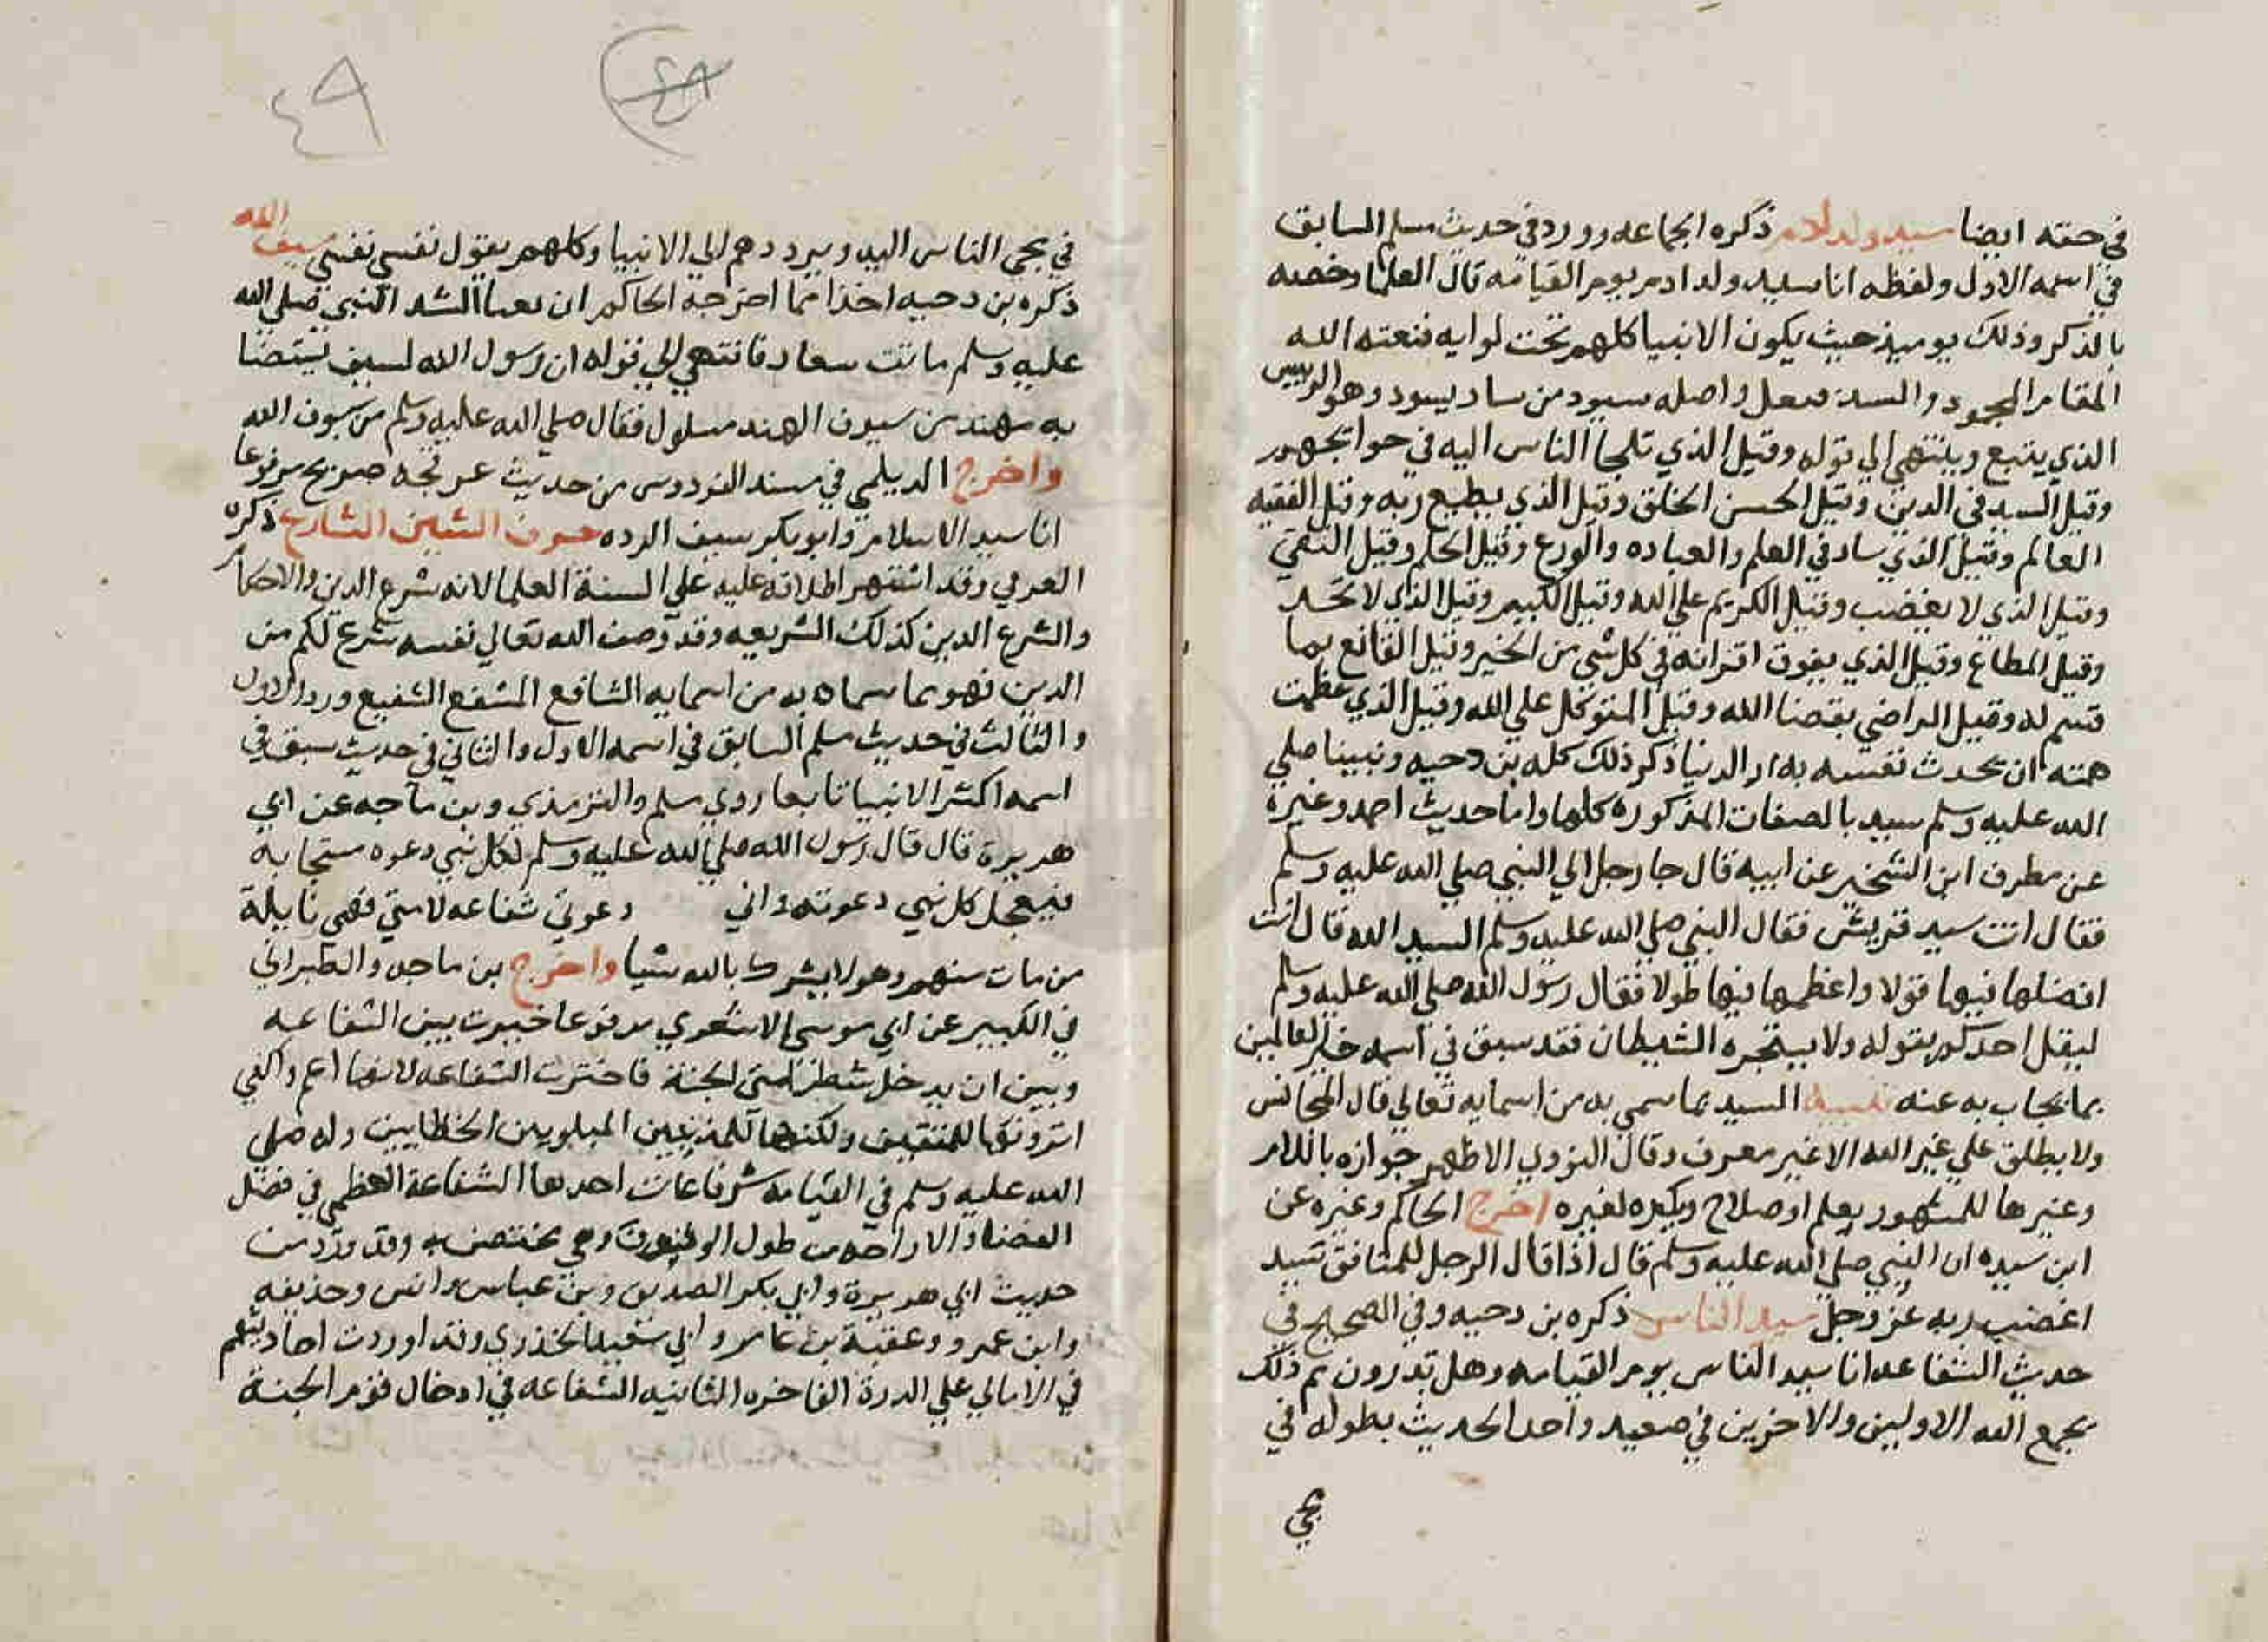 في حقه ايضا سيد ولد ادم ذكره الجماعه وورد في حديث مسلم السابق
في اسمه الاول ولفظه انا سيد ولد ادم يوم القيامه قال العلما وخصه
بالذكر وذلك يوميذ حيث يكون الانبيا كلهم تحت لوايه فنعته الله
المقام المحمود والسيد فيعل واصله سيود من ساد يسود وهو الرييس
الذي يتبع وينتهي الي قوله وقيل الذي تلجا الناس اليه في حوايجهم
وقيل السيد في الدين وقيل الحسن الخلق وقيل الذي يطيع ربه وقيل الفقيه
العالم وقيل الذي ساد في العلم والعباده والورع وقيل الحلم وقيل التقي
وقيل الذي لا يغضب وقيل الكريم علي الله وقيل الكبير وقيل الذي لا يحسد
وقيل المطاع وقيل الذي يفوق اقرانه في كل شي من الخير وقيل القانع بما
قسم له وقيل الراضي بقضا الله وقيل المتوكل علي الله وقيل الذي عظمت
همته ان يحدث نفسه بدار الدنيا ذكر ذلك كله بن دحيه ونبينا صلي
الله عليه وسلم سيد بالصفات المذكوره كلها واما حديث احمد وغيره
عن مطرف ابن الشخير عن ابيه قال جا رجل الي النبي صلي الله عليه وسلم
فقال انت سيد قريش فقال النبي صلي الله عليه وسلم السيد الله قال انت
افضلها فيها قولا واعظمها فيها طولا فقال رسول الله صلي الله عليه وسلم
ليقل احدكم بقوله ولا يستجره الشيطان فقد سبق في اسمه خير العالمين
بما يجاب به عنه تنبيه السيد مما سمي به من اسمايه تعالي قال النحاس
ولا يطلق علي غير الله الا غير معرف وقال النووي الاظهر جوازه باللام
وغيرها للمشهور بعلم او صلاح ويكره لغيره اخرج الحاكم وغيره عن
ابن بريده ان النبي صلي الله عليه وسلم قال اذا قال الرجل للمنافق سيد
اغضب ربه عز وجل سيد الناس ذكره بن دحيه وفي الصحيح في
حديث الشفاعه انا سيد الناس يوم القيامه وهل تدرون مم ذلك
يجمع الله الاولين والاخرين في صعيد واحد الحديث بطوله في
مجي
٤٨
٤٩
في مجي الناس اليه ويرددهم الي الانبيا وكلهم يقول نفسي نفسي سيف الله
ذكره بن دحيه اخذا مما اخرجه الحاكم ان كعبا انشد النبي صلي الله
عليه وسلم بانت سعاد فانتهي الي قوله ان رسول الله لسيف يستضا
به مهند من سيوف الهند مسلول فقال صلي الله عليه وسلم من سيوف الله
واخرج الديلمي في مسند الفردوس من حديث عرفجه صريح مرفوعا
انا سيد الاسلام وابو بكر سيف الرده حرف الشين الشارع ذكره
العزفي وقد اشتهر اطلاقه عليه علي السنة العلما لانه شرع الدين والاحكام
والشرع الدين كذلك الشريعه وقد وصف الله تعالي نفسه شرع لكم من
الدين فهو مما سماه به من اسمايه الشافع المشفع الشفيع ورد الاول
والثالث في حديث مسلم السابق في اسمه الاول والثاني في حديث سبق في
اسمه اكثر الانبيا تابعا روي مسلم والترمذي وبن ماجه عن ابي
هريرة قال قال رسول الله صلي الله عليه وسلم لكل نبي دعوه مستجابه
فيعجل كل نبي دعوته واني دعوتي شفاعه لامتي فهي نايلة
من مات منهم وهو لا يشرك بالله شيا واخرج بن ماجه والطبراني
في الكبير عن ابي موسي الاشعري مرفوعا خيرت بين الشفاعه
وبين ان يدخل شطر امتي الجنة فاخترت الشفاعه لانها اعم واكفي
اترونها للمتقين ولكنها للمذنبين المبلوبين الخطايين وله صلي
الله عليه وسلم في القيامه شفاعات احدها الشفاعة العظمي في فصل
القضا والاراحه من طول الوقوف وهي مختصه به وقد وردت من
حديث ابي هريرة وابي بكر الصديق وبن عباس وانس وحذيفه
وابن عمرو وعقبة بن عامر وابي سعيد الخدري وقد اوردت احاديثهم
في الامالي علي الدرة الفاخره الثانيه الشفاعه في ادخال قوم الجنة